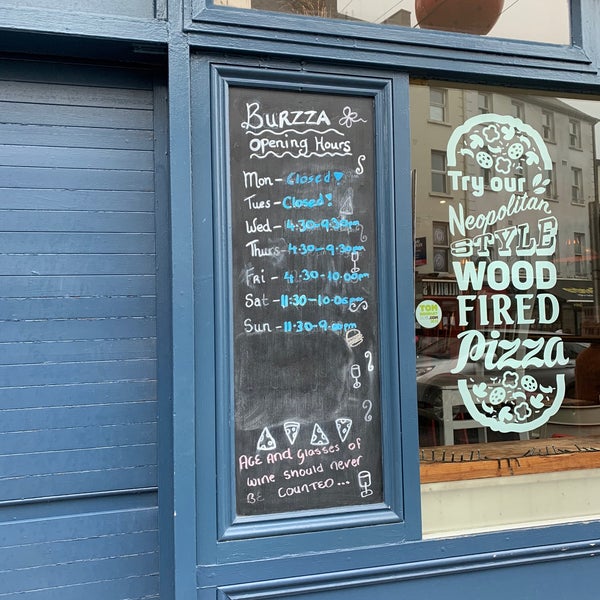 BURZZA
Opening Hours
Mon - Closed!
Tues - Closed!
Wed - 4:30-9:30pm
Thurs - 4:30-9:30pm
Fri - 4:30-10:00pm
Sat - 11:30-10:00pm
Sun - 11:30-9:00pm
AGE And glasses of
wine should never
BE COUNTED...
Try our
Neopolitan
STYLE
WOOD
FIRED
Pizza